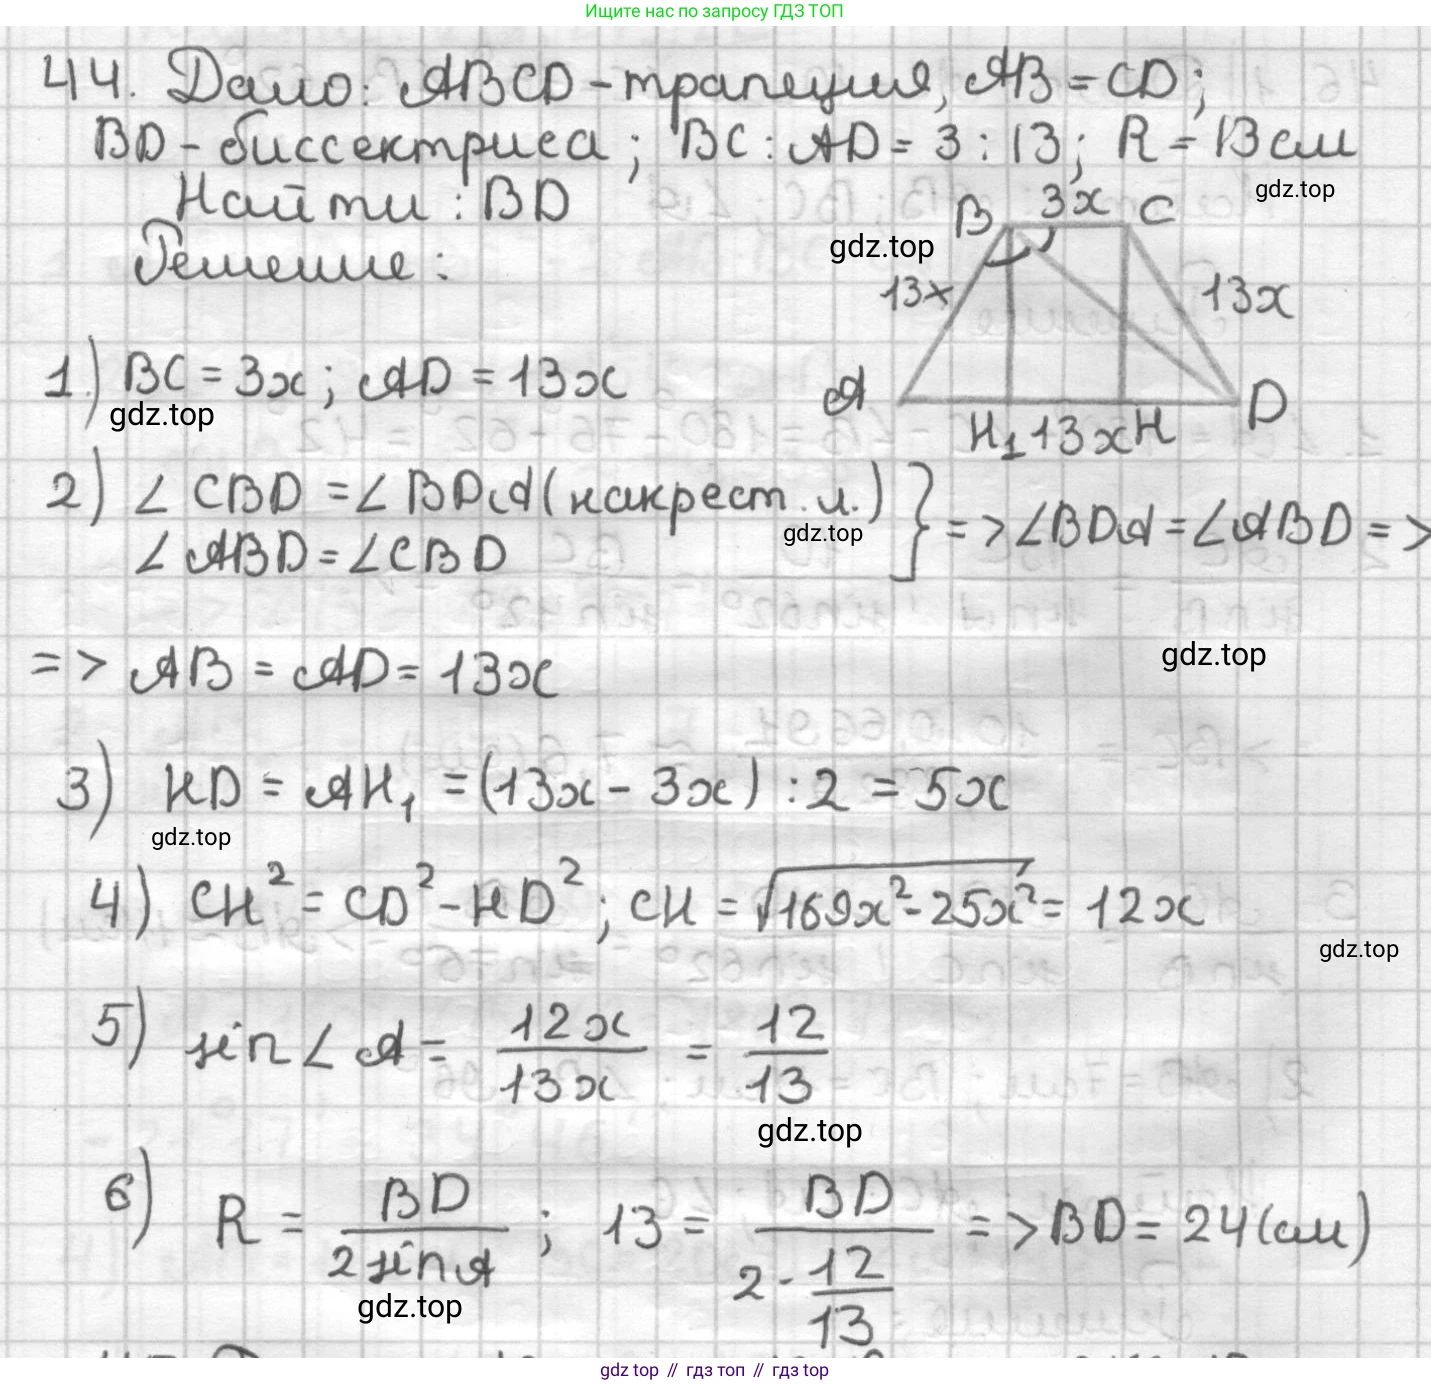 Ищите нас по запросу ГДЗ ТОП
44. Дано: ABCD - трапеция, AB = CD;
BD - биссектриса; BC : AD = 3 : 13; R = 13 см
gdz.top
Найти : BD
B 3x C
gdz.top
Решение :
13x 13x
1) BC = 3x ; AD = 13x
A D
gdz.top
H₁ 13x H
2) ∠ CBD = ∠ BDA (накрест. л.)
∠ ABD = ∠ CBD } => ∠BDA = ∠ABD =>
gdz.top
=> AB = AD = 13x
gdz.top
3) HD = AH₁ = (13x - 3x) : 2 = 5x
gdz.top
4) CH² = CD² - HD² ; CH = √169x² - 25x² = 12x
gdz.top
5) sin ∠ A = 12x / 13x = 12 / 13
gdz.top
6) R = BD / 2 sin A ; 13 = BD / 2 · 12/13 => BD = 24 (см)
gdz.top
gdz top // гдз топ // гдз.top